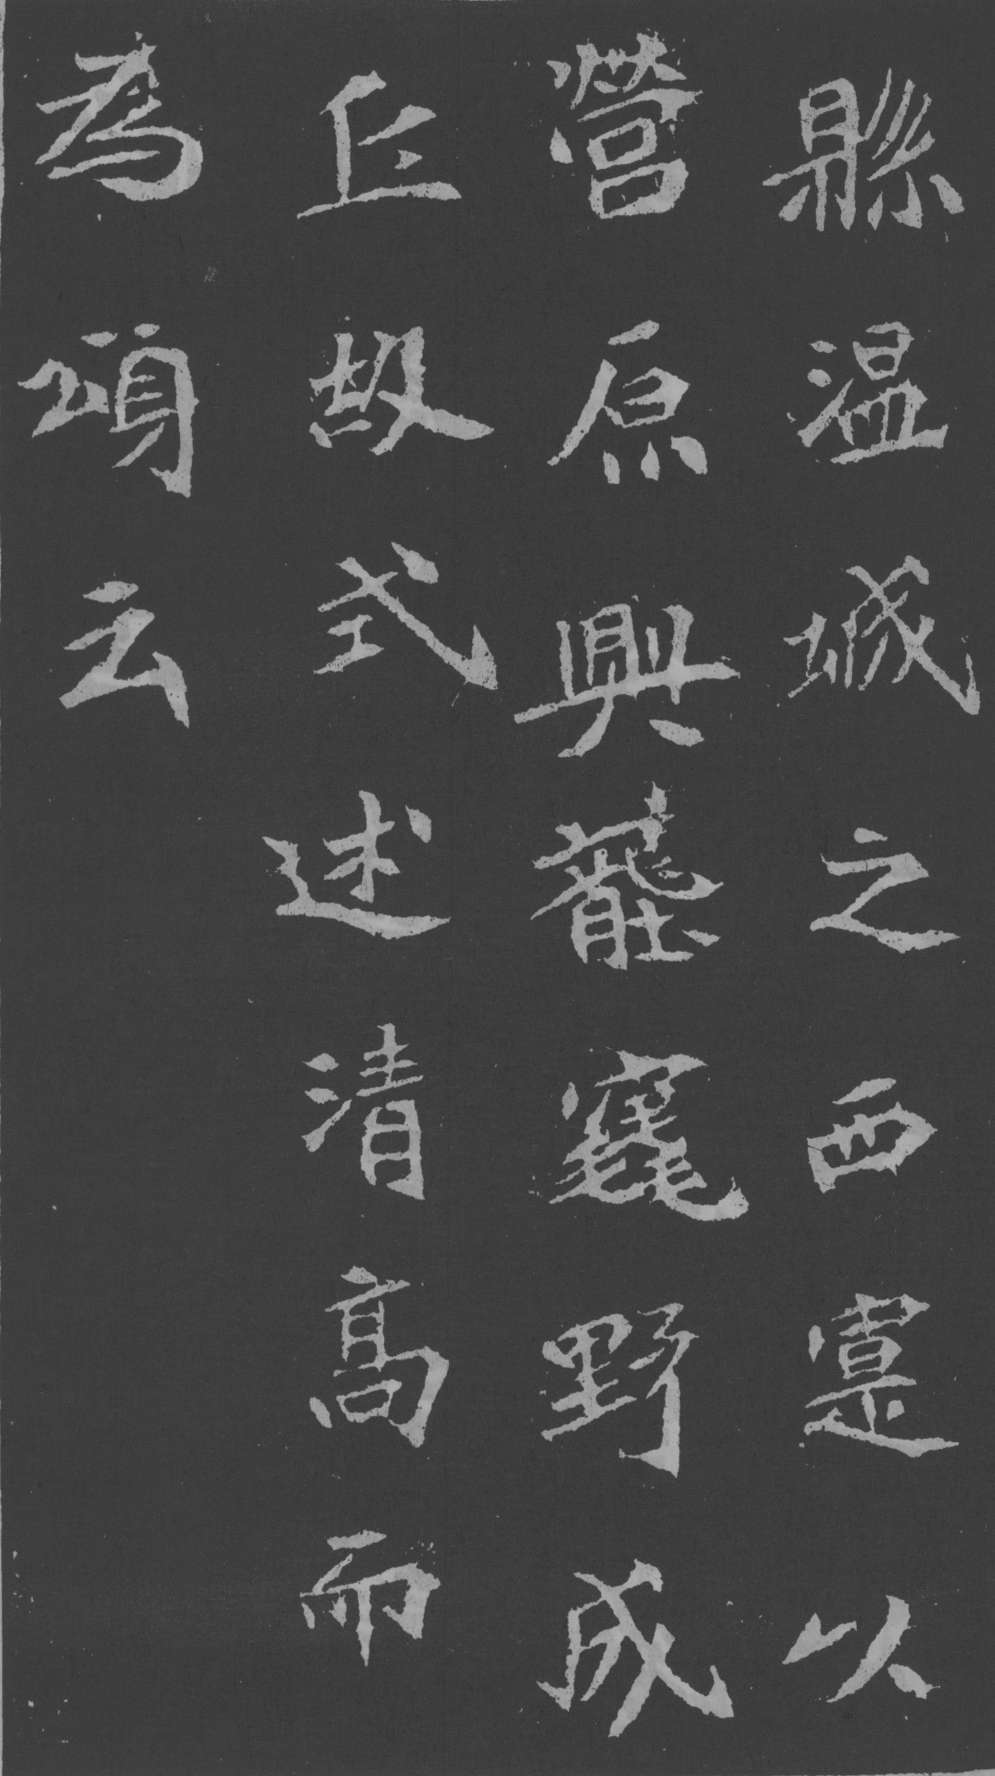 縣温城之西寔以
營原興壟竁野成
丘故式述清高而
為頌云